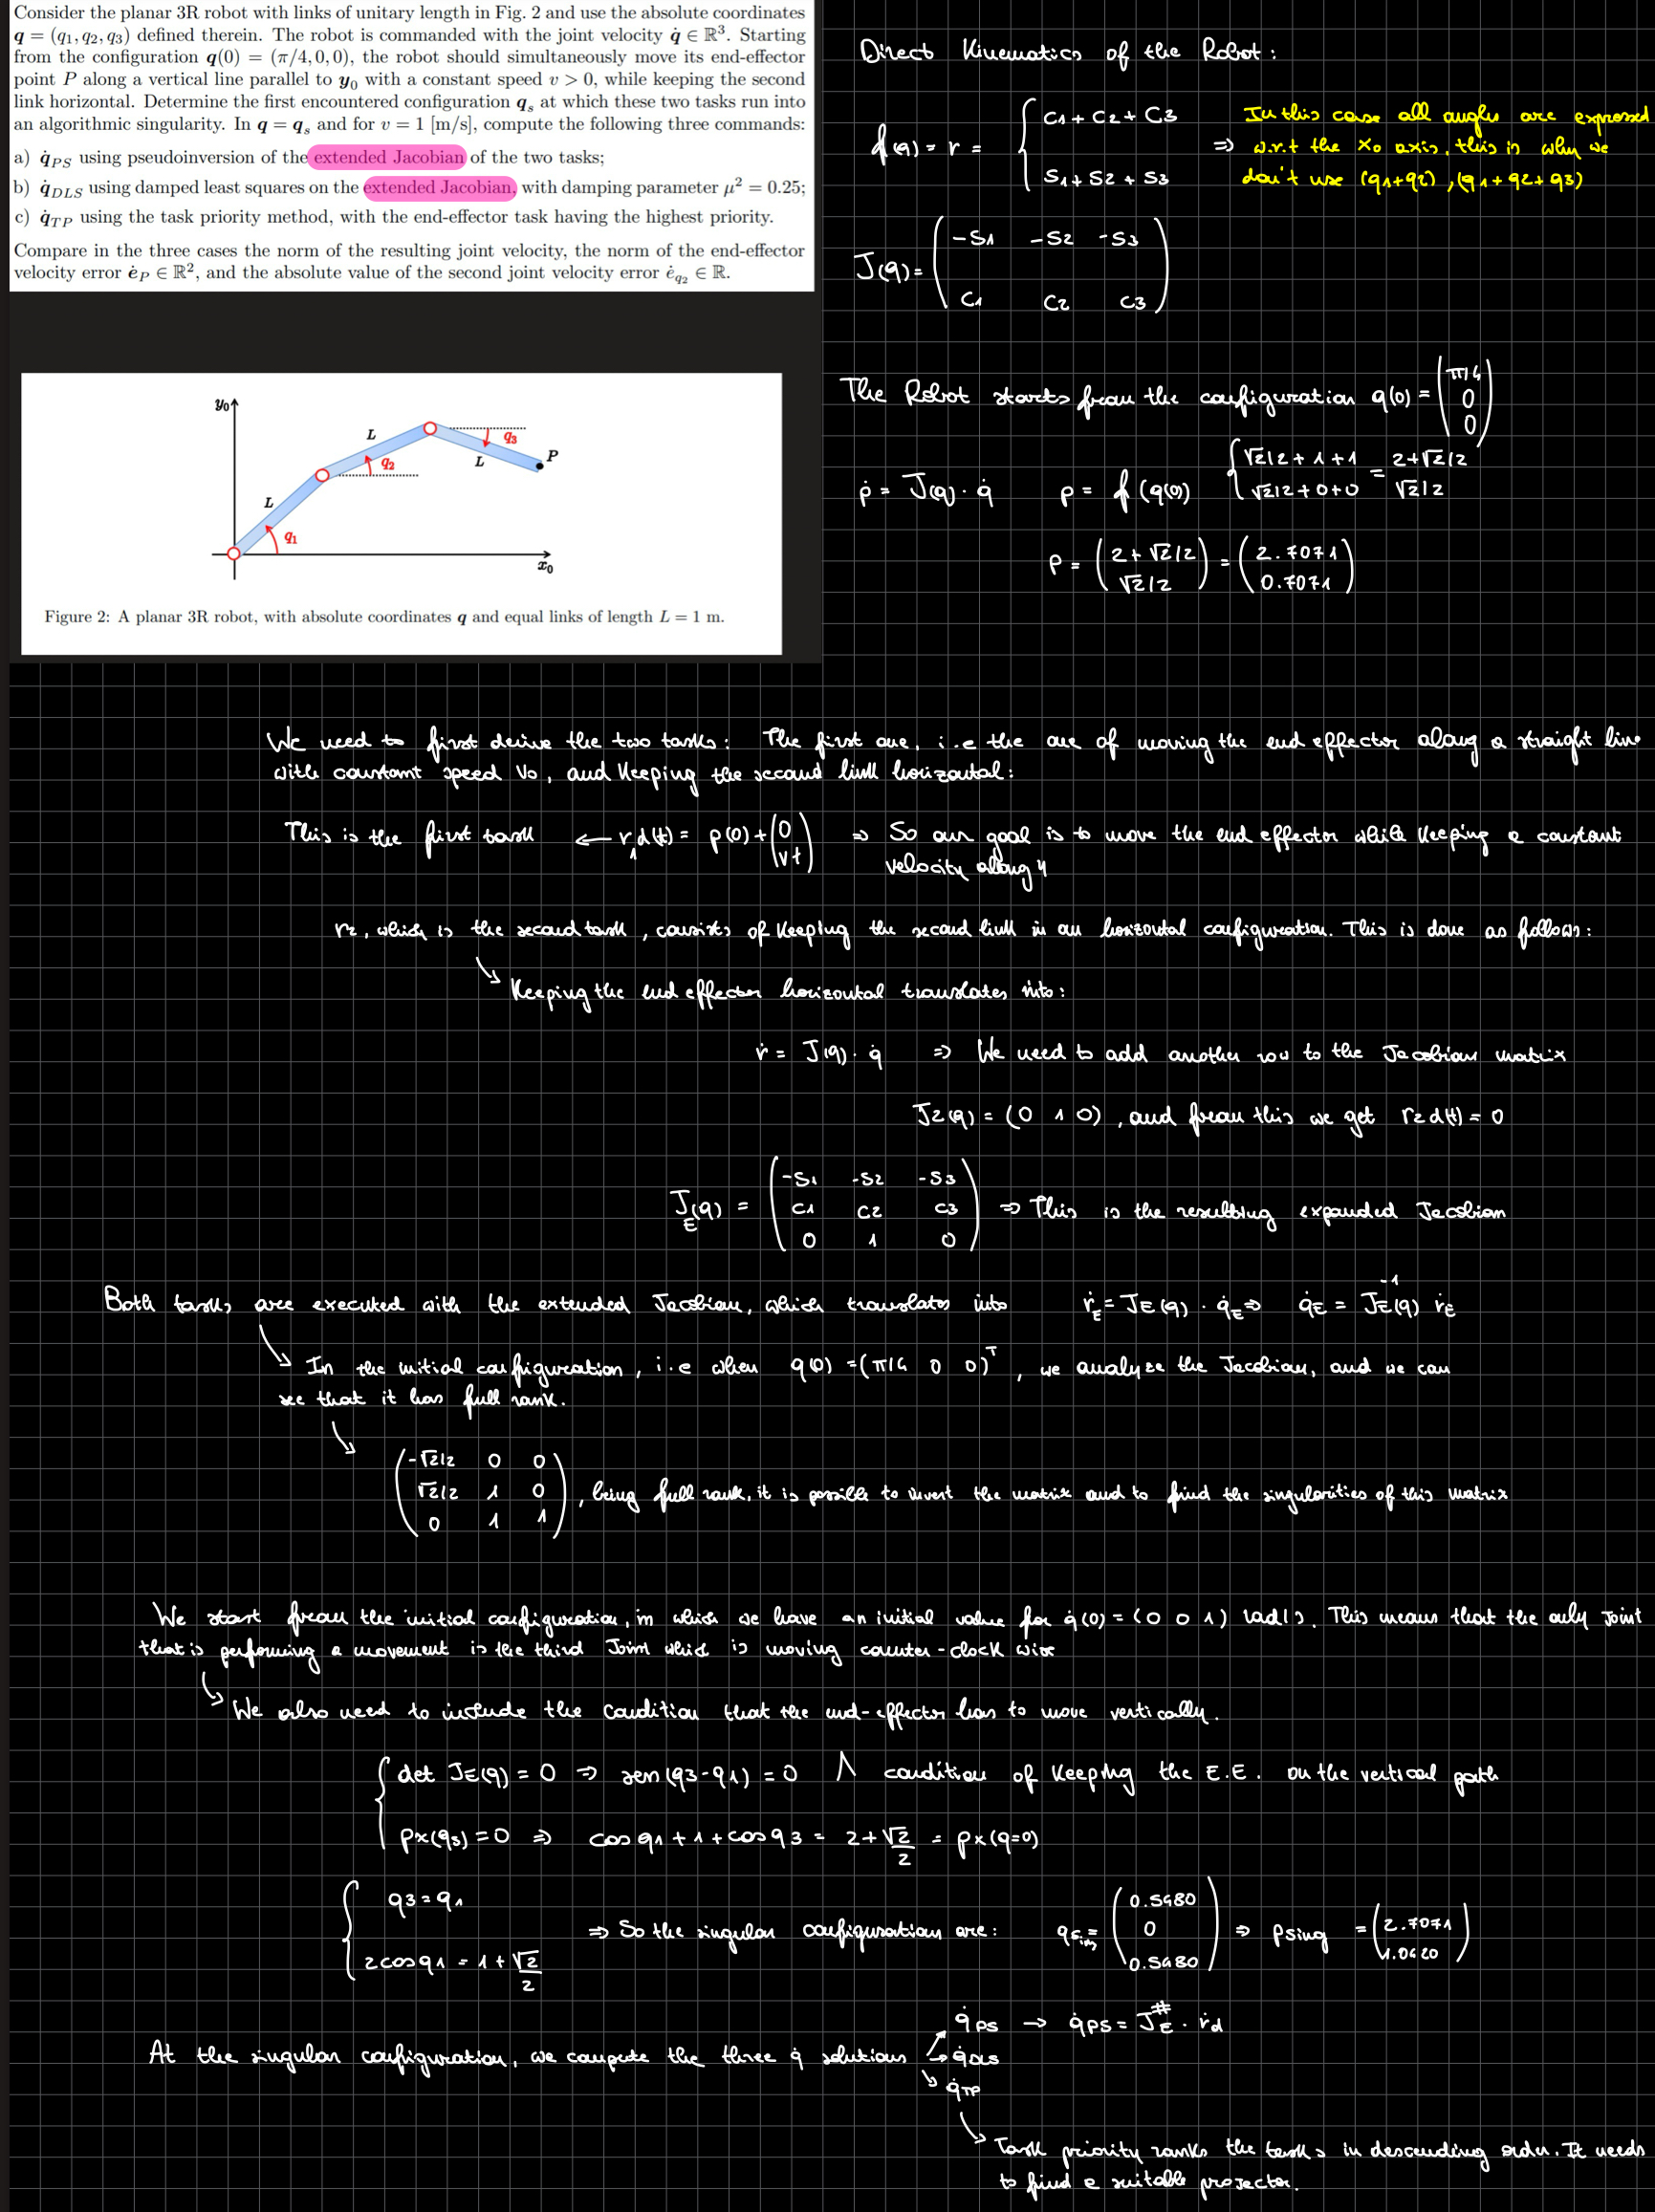 Consider the planar 3R robot with links of unitary length in Fig. 2 and use the absolute coordinates
q = (q1, q2, q3) defined therein. The robot is commanded with the joint velocity q̇ ∈ ℝ³. Starting
from the configuration q(0) = (π/4, 0, 0), the robot should simultaneously move its end-effector
point P along a vertical line parallel to y0 with a constant speed v > 0, while keeping the second
link horizontal. Determine the first encountered configuration qs at which these two tasks run into
an algorithmic singularity. In q = qs and for v = 1 [m/s], compute the following three commands:
a) q̇PS using pseudoinversion of the extended Jacobian of the two tasks;
b) q̇DLS using damped least squares on the extended Jacobian, with damping parameter μ² = 0.25;
c) q̇TP using the task priority method, with the end-effector task having the highest priority.
Compare in the three cases the norm of the resulting joint velocity, the norm of the end-effector
velocity error ėP ∈ ℝ², and the absolute value of the second joint velocity error ėq2 ∈ ℝ.
y0
L
q3
L
q2
L
P
L
q1
x0
Figure 2: A planar 3R robot, with absolute coordinates q and equal links of length L = 1 m.
Direct Kinematics of the Robot:
f(q) = r = { C1 + C2 + C3
S1 + S2 + S3
In this case all angles are expressed
⇒ w.r.t the X0 axis, this is why we
don't use (q1+q2), (q1+q2+q3)
J(q) = ( -S1 -S2 -S3
C1 C2 C3 )
The Robot starts from the configuration q(0) = ( π/4
0
0 )
ṗ = J(q) · q̇ p = f(q(0)) { √2/2 + 1 + 1 = 2+√2/2
√2/2 + 0 + 0 √2/2
p = ( 2+√2/2
√2/2 ) = ( 2.7071
0.7071 )
We need to first derive the two tasks: The first one, i.e the one of moving the end effector along a straight line
with constant speed V0, and Keeping the second link horizontal:
This is the first task ← r1d(t) = p(0) + ( 0
vt ) ⇒ So our goal is to move the end effector while Keeping a constant
velocity along y
r2, which is the second task, consists of Keeping the second link in an horizontal configuration. This is done as follows:
Keeping the end effector horizontal translates into:
ṙ = J(q) · q̇ ⇒ We need to add another row to the Jacobian matrix
J2(q) = (0 1 0), and from this we get r2d(t) = 0
JE(q) = ( -S1 -S2 -S3
C1 C2 C3
0 1 0 ) ⇒ This is the resulting expanded Jacobian
Both tasks are executed with the extended Jacobian, which translates into ṙE = JE(q) · q̇E ⇒ q̇E = JE(q)⁻¹ ṙE
In the initial configuration, i.e when q(0) = (π/4 0 0)ᵀ, we analyze the Jacobian, and we can
see that it has full rank.
( -√2/2 0 0
√2/2 1 0
0 1 1 ), being full rank, it is possible to invert the matrix and to find the singularities of this matrix
We start from the initial configuration, in which we have an initial value for q̇(0) = (0 0 1) rad/s. This means that the only joint
that is performing a movement is the third Joint which is moving counter-clock wise
We also need to include the condition that the end-effector has to move vertically.
{ det JE(q) = 0 ⇒ sen(q3-q1) = 0 ∧ condition of Keeping the E.E. on the vertical path
px(qs) = 0 ⇒ cos q1 + 1 + cos q3 = 2+√2/2 = px(q=0)
{ q3 = q1
2cos q1 = 1 + √2/2
⇒ So the singular configurations are: qsing = ( 0.5480
0
0.5480 ) ⇒ psing = ( 2.7071
1.0420 )
q̇PS → q̇PS = JE# · ṙd
At the singular configuration, we compute the three q̇ solutions → q̇DLS
q̇TP
Task priority ranks the tasks in descending order. It needs
to find a suitable projector.